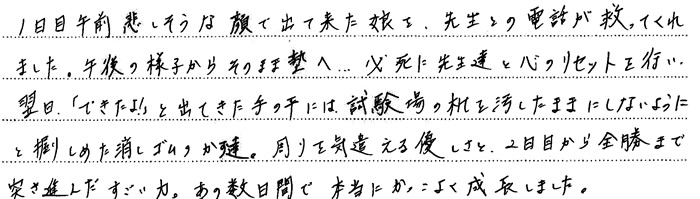 1日目午前 悲しそうな顔で出て来た娘を、先生との電話が救ってくれ
ました。午後の様子からそのまま塾へ…必死に先生達と心のリセットを行い、
翌日、「できたよ!」と出てきた手の平には、試験場の机を汚したままにしないように
と握りしめた消しゴムのカ達。周りを気遣える優しさと、2日目から全勝まで
突き進んだすごい力。あの数日間で本当にかっこよく成長しました。